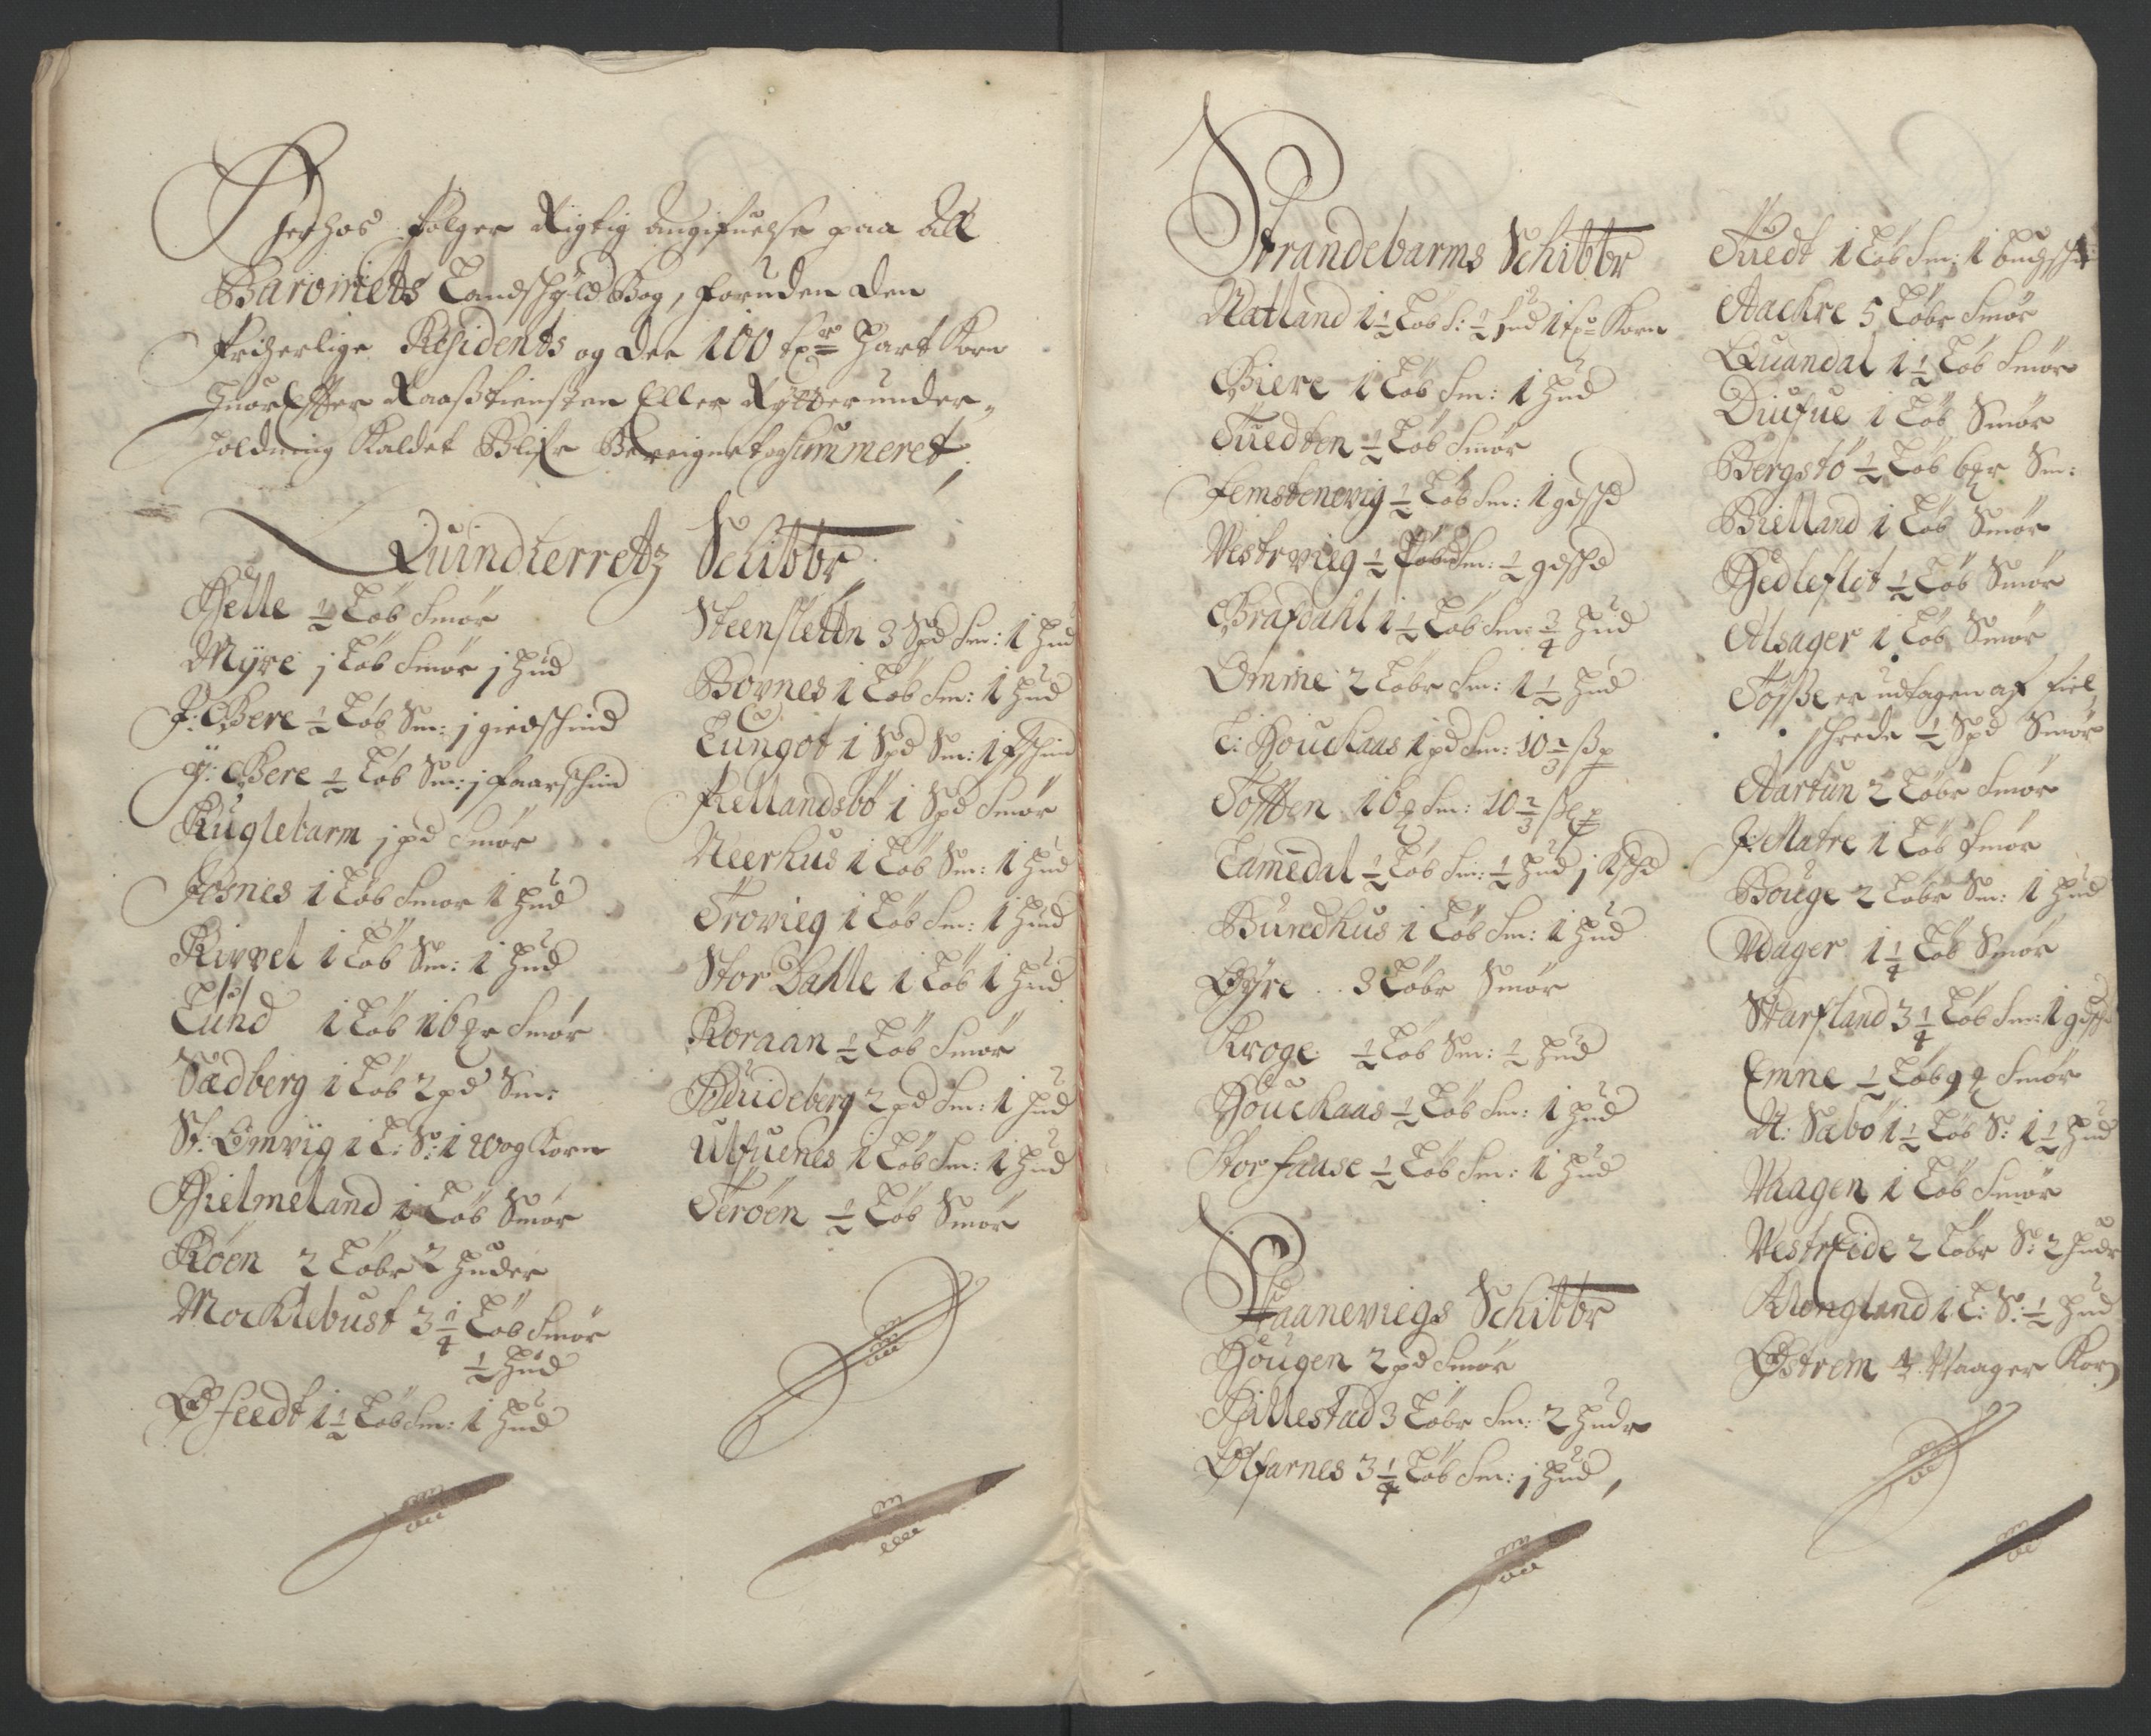 Herhos følger Rigtig angifuelse paa All
Baroniets Landschyld Bog, foruden den
friherlige Residents og den 100 tdr Hart Korn
huorEffter Roostienisten Eller Rytterunder-
holdning Kaldet Blifr Bereignet og Summeret,
Quindherretz Schibbr
Helle ½ Løb Smør
Myre j Løb Smør j hud
J: Bere ½ Løb Sm: j giedschind
Y: Bere ½ Løb Sm: j faarschin
Kuglebarm j pd Smør
Fosnes 1 Løb Smør 1 hud
Kirvel 1 Løb Sm: 1 hud
Lund 1 Løb 16 Smør
Sædberg 1 Løb 2 pd Sm:
St: Omvig 1 L: S: 1 Korn
Hielmeland 1 Løb Smør
Røen 2 Løbr 2 huder
Mocklebust 3 ¼ Løb Smør
½ hud
Øfeedt 1 ½ Løb Sm: 1 hud
Steensletten 3 Spd Sm: 1 hud
Bovnes 1 Løb Sm: 1 hud
Lungot 1 Spd Sm: 1 fschind
Kellandsbø 1 Spd Smør
Neerhus 1 Løb Sm: 1 hud
Trovieg 1 Løb Sm: 1 hud
Stor Dahle 1 Løb 1 hud
Koraan ½ Løb Smør
Huideberg 2 pd Sm: 1 hud
Ulfuenes 1 Løb Sm: 1 hud
Terøen ½ Løb Smør
Strandebarms Schibbr
Natland 1 ½ Løb S: ½ hud 1 Korn
Giere 1 Løb Sm: 1 hud
Tuedten ½ Løb Smør
Femstenevig ½ Løb Sm: 1 gdschd
Vestrvieg ½ Løb Sm: ½ gdschd
Grafdahl 1 ½ Løb Sm: ¾ hud
Omme 2 Løbr Sm: 1 ½ hud
L: Houckaas 1 pd Sm: 10 ⅔ ß
Tofften 16 Sm: 10 ⅔ ß
Lamedal ½ Løb Sm: ½ hud j
Bundhus 1 Løb Sm: 1 hud
Øyre .. 3 Løbr Smør
Kroge ½ Løb Sm: ½ hud
Houckaas ½ Løb Sm: 1 hud
Stor faase ½ Løb Sm: 1 hud
Schaaneviegs Schibbr
Hougen 2 pd Smør
Hillestad 3 Løbr Sm: 2 hudr
Ølfarnes 3 ¼ Løb Sm: j hud,
Tuedt 1 Løb Sm: 1
Aackre 5 Løbr Smør
Quandal 1 ½ Løb Smør
Diufue 1 Løb Smør
Bergstø ½ Løb 6 Sm:
Bielland 1 Løb Smør
Hedleflot ½ Løb Smør
Alsager 1 Løb Smør
Tøsse er udtagen af fiel
schrede ½ Spd Smør
Aartun 2 Løbr Smør
J: Matre 1 Løb Smør
Bouge 2 Løbr Sm: 1 hud
Vdager 1 ¼ Løb Smør
Skarfland 3 ¼ Løb Sm: 1 gdsch
Emne ½ Løb 9 Smør
N: Sæbø 1 ½ Løb S: 1 ½ hud
Vaagen 1 Løb Smør
Vestreide 2 Løbr S: 2 hudr
Klongland 1 L: S: ½ hud
Østrem 4 Vaager Korn